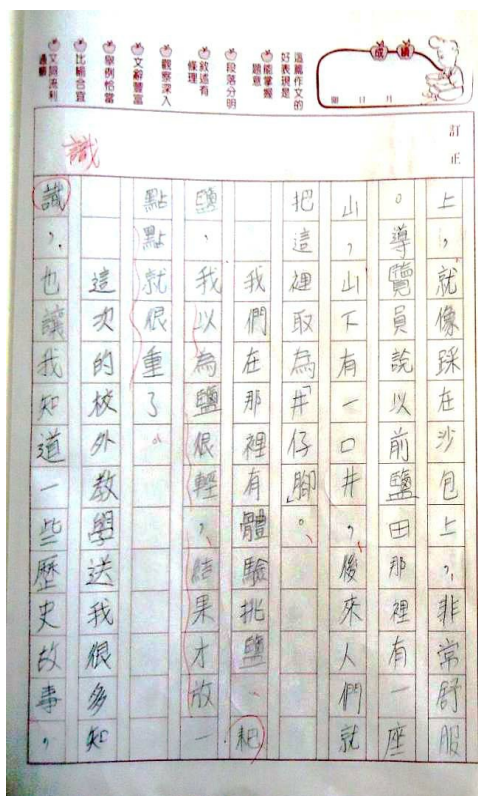 成績
月 日
這篇作文的
好表現是
能掌握
題意
段落分明
敘述有
條理
觀察深入
文辭豐富
舉例恰當
比喻合宜
文詞流利
訂正
識
上，就像踩在沙包上，非常舒服
。導覽員說以前鹽田那裡有一座
山，山下有一口井，後來人們就
把這裡取為「井仔腳」。
我們在那裡有體驗挑鹽、耙
鹽，我以為鹽很輕，結果才放一
點點就很重了。
這次的校外教學送我很多知
識，也讓我知道一些歷史故事，